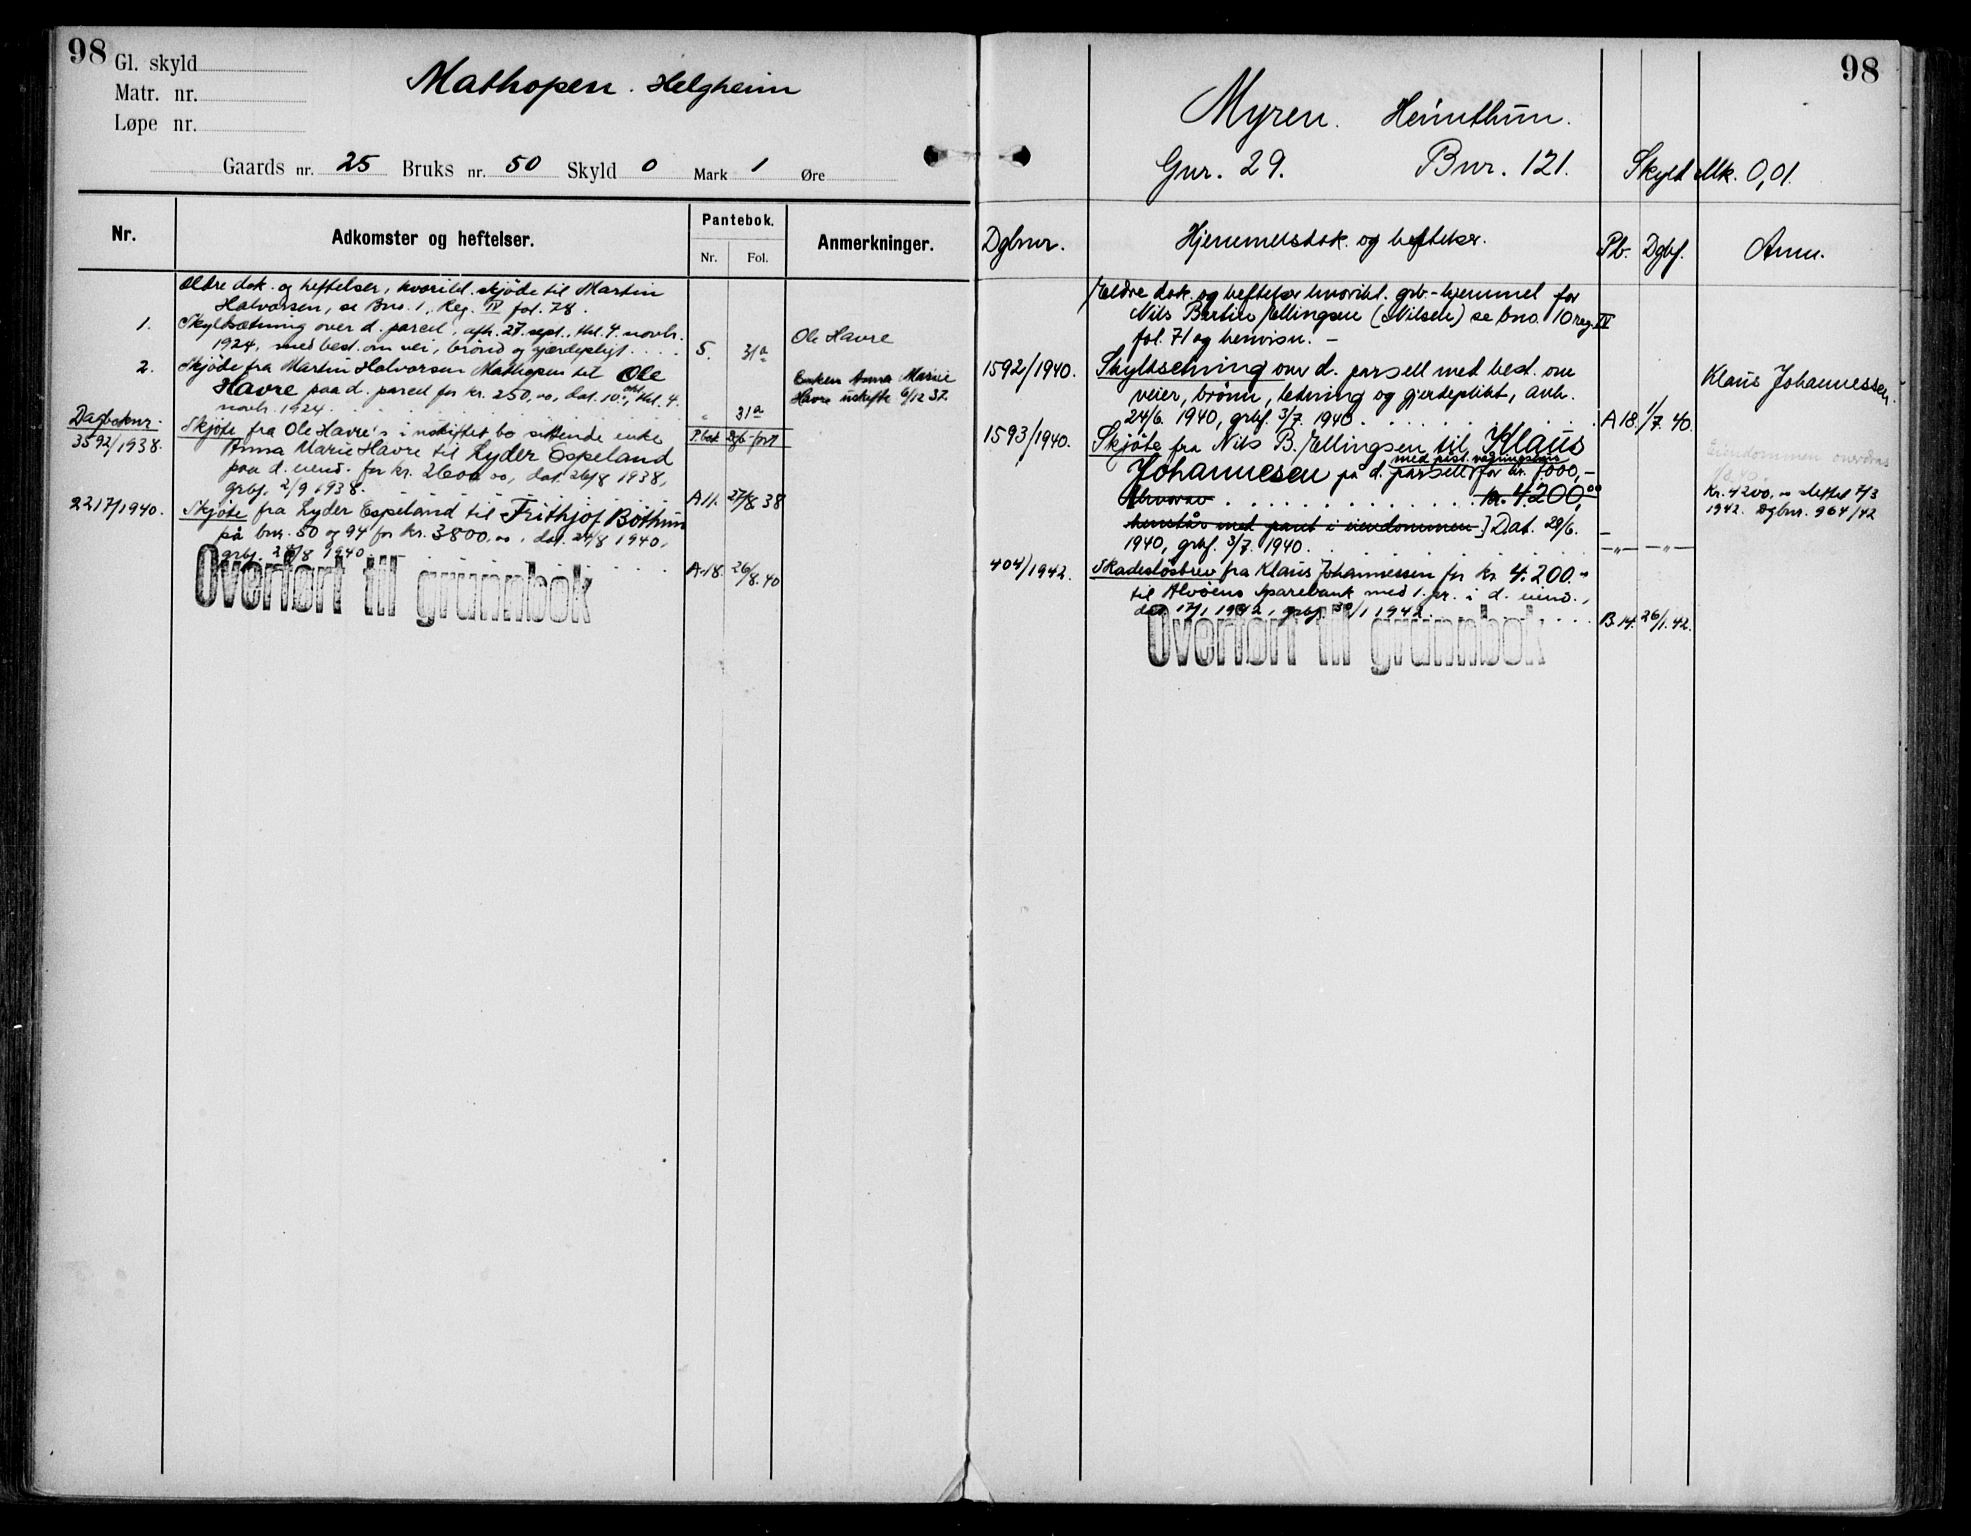 98
Gl. skyld
Matr. nr.
Løpe nr.
Mathopen. Helgheim
Gaards nr. 25 Bruks nr. 50 Skyld 0 Mark 1 Øre
Nr. Adkomster og heftelser. Pantebok. Nr. Fol. Anmerkninger.
Ældre dok. og heftelser, hvoribl. skjøde til Martin
Halvorsen, se Bno. 1, Reg. IV fol. 78.
1. Skyldsætning over d. parcel, afh. 27. sept., thl. 4. novbr.
1924, med best. om vei, brønd og gjærdepligt. . . . 5. 31a
Ole Havre
2. Skjøde fra Martin Halvorsen Mathopen til Ole
Havre paa d. parcel for kr. 250,00, dat. 10. okt., thl. 4.
novbr. 1924. . . . " 31a
Enken Anna Marie
Havre uskifte 6/12 37.
Dagboknr. P.bok Dgb-ført
3592/1938. Skjøte fra Ole Havre's i uskiftet bo sittende enke
Anna Marie Havre til Lyder Espeland
paa d. eiend. for kr. 2600,00, dat. 26/8 1938,
grbf. 2/9 1938. . . . A 11. 27/8 38
2217/1940. Skjøte fra Lyder Espeland til Frithjof Bøthun
på bnr. 50 og 94 for kr. 3800,00, dat. 24/8 1940,
grbf. 28/8 1940. . . . A.18. 26/8. 40
Overført til grunnbok
98
Myren. Heimthun.
Gnr. 29. Bnr. 121. Skyld Mk. 0,01.
Dgbnr. Hjemmelsdok. og heftelser. Pb. Dgbf. Anm.
Ældre dok. og heftelser hvoribl. grb.-hjemmel for
Nils Bertin Ellingsen (Nilsen) se bno. 10 reg. IV
fol. 71 og henvisn. –
1592/1940. Skyldsetning over d. parsell med best. om
veier, brønn, ledning og gjerdeplikt, avh.
24/6. 1940, grbf. 3/7. 1940. . . . A 18. 1/7. 40.
Klaus Johannessen.
1593/1940. Skjøte fra Nils B. Ellingsen til Klaus
Johannesen på d. parsell med påst. våningshus for kr. 7000,–
hvorav . . . kr. 4.200,00
henstår med pant i eiendommen] Dat. 29/6.
1940, grbf. 3/7. 1940. . . . – – " – – " –
Eiendommen overdras
Kr. 4200,00 slettet 7/3
1942. Dgbnr. 964/42
404/1942. Skadesløsbrev fra Klaus Johannessen for kr. 4.200.–
til Alvøens Sparebank med 1. pr. i d. eiend.,
dat. 17/1 1942, grbf. 30/1 1942. . . . B 14. 26/1. 42.
Overført til grunnbok